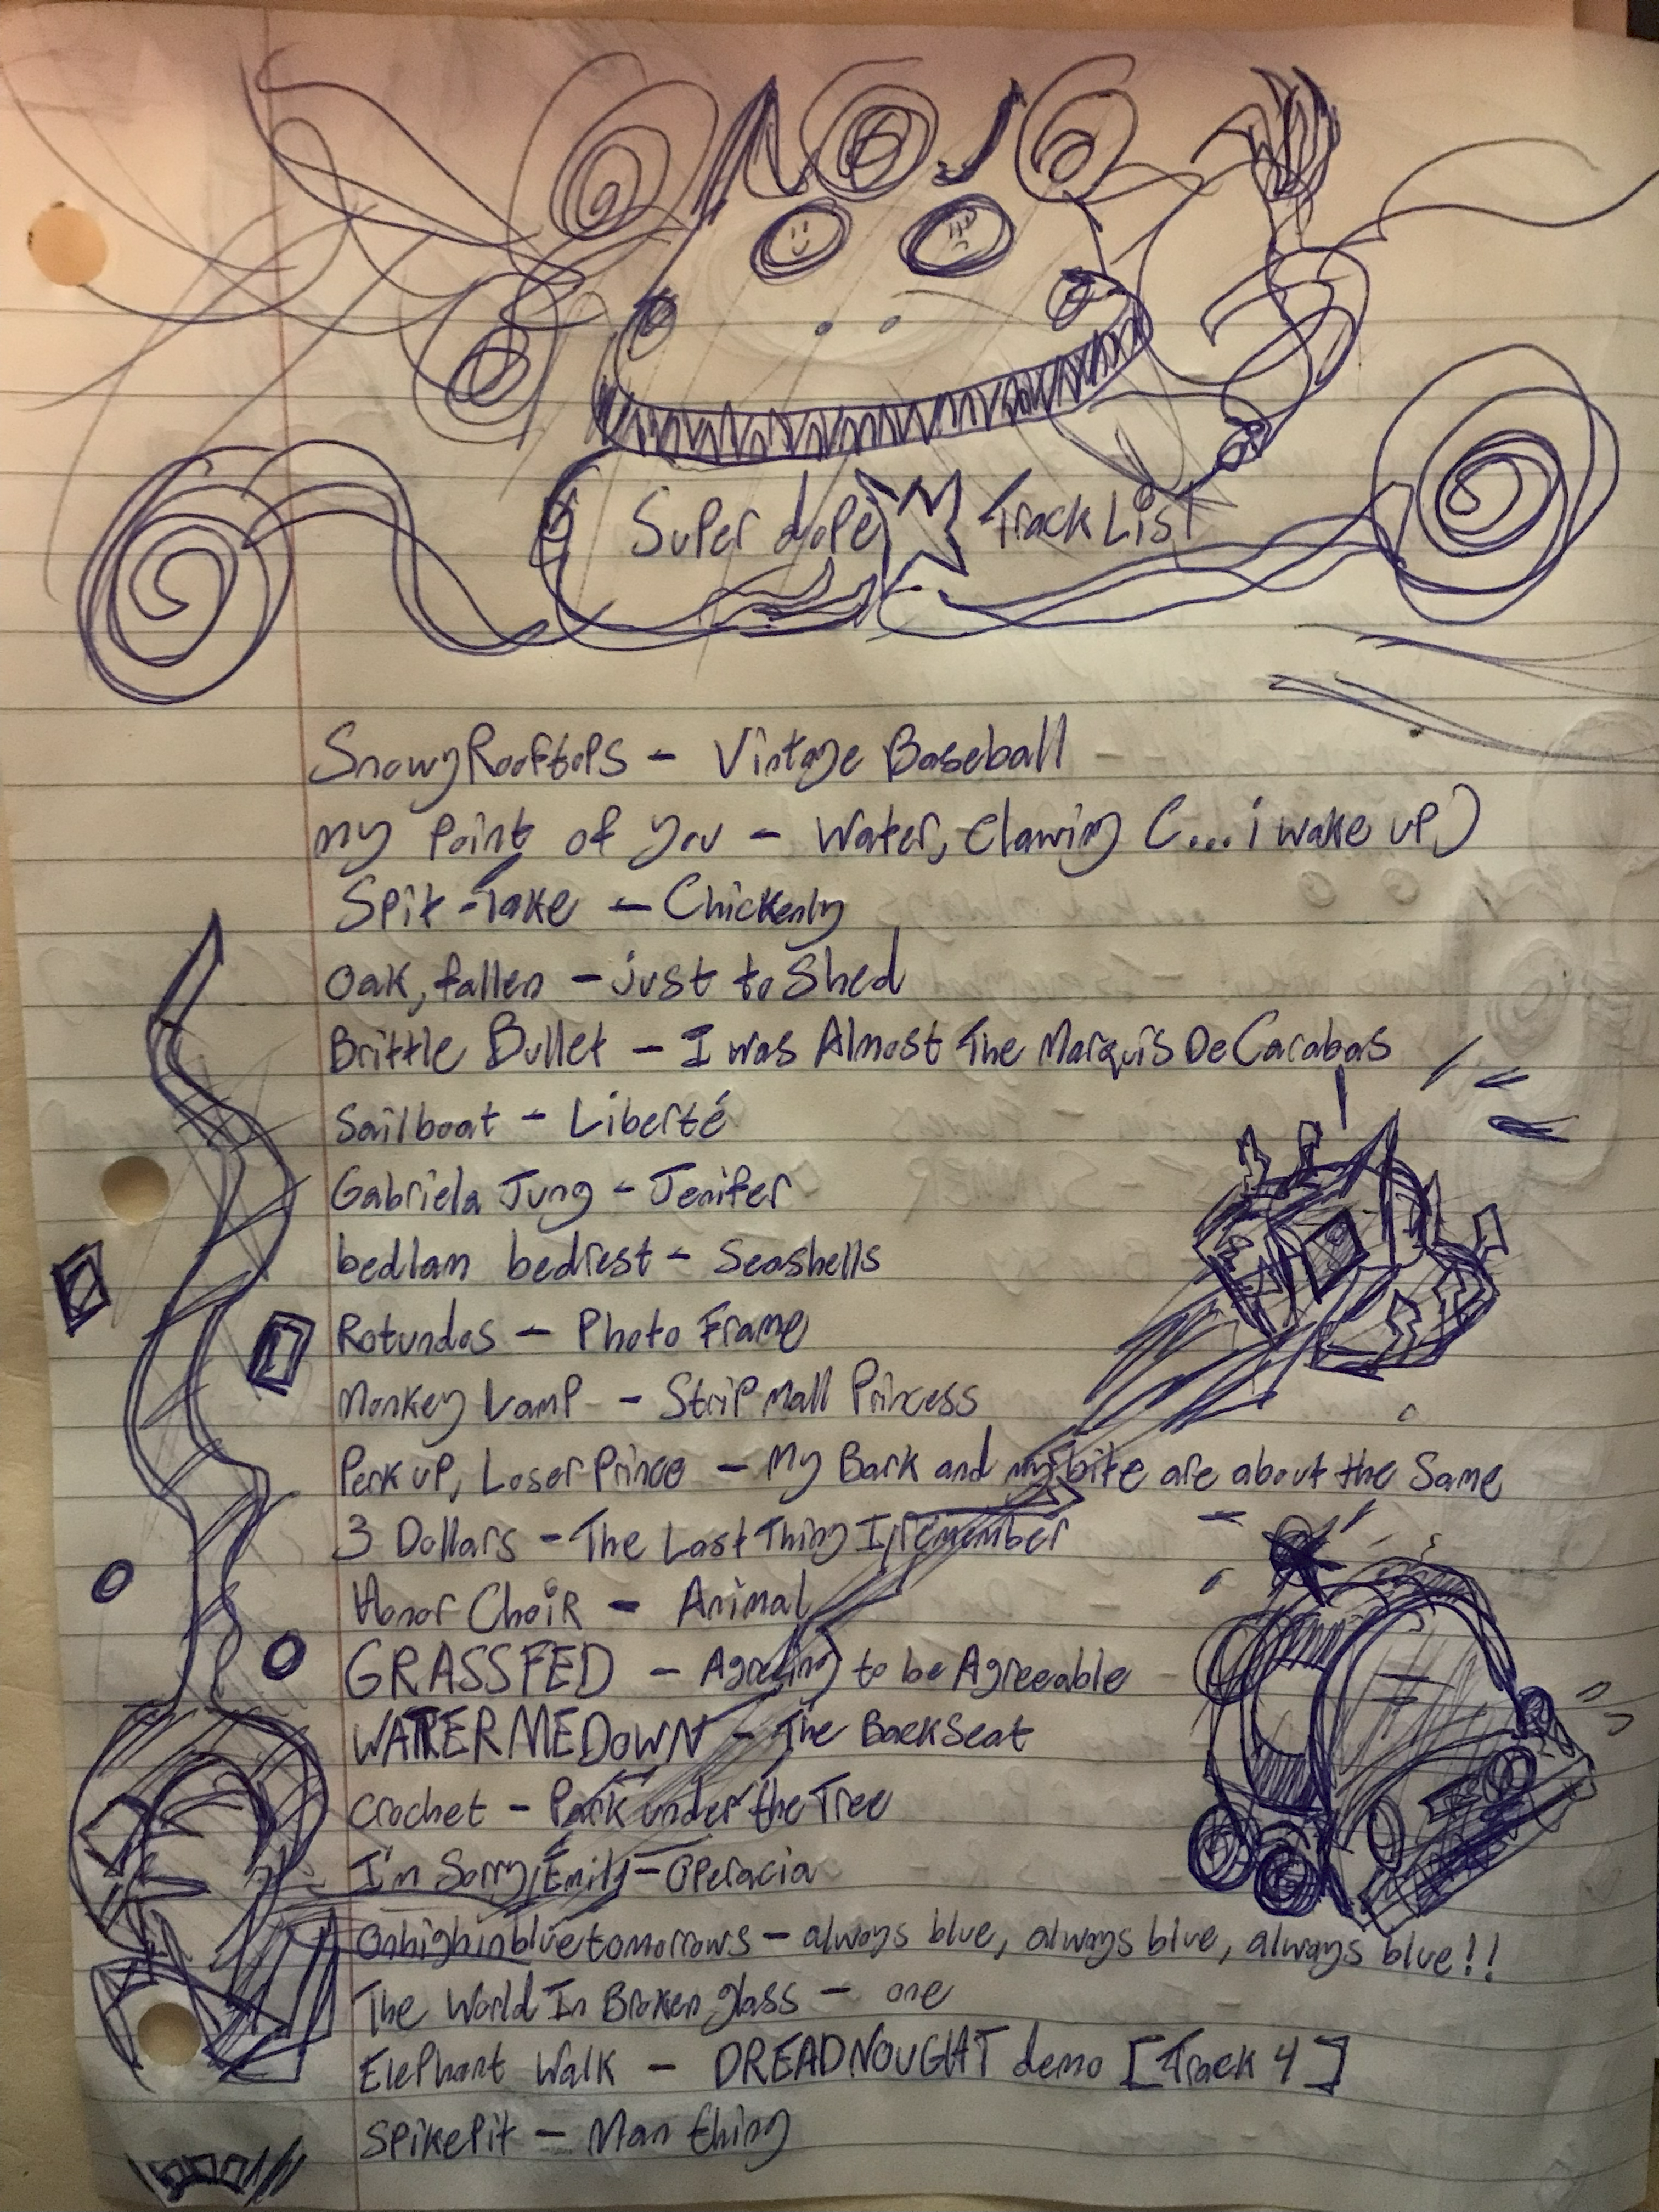 Super dope Track List
Snowy Rooftops - Vintage Baseball -
my point of you - Water, Clawing (...i wake up)
Spit-Take - Chickenly
Oak, fallen - just to Shed
Brittle Bullet - I was Almost The Marquis De Carabas
Sailboat - Liberté
Gabriela Jung - Jenifer
bedlam bedrest - Seashells
Rotundos - Photo Frame
Monkey Lamp - Strip Mall Princess
Perk up, Loser Prince - My Bark and my bite are about the Same
3 Dollars - The Last Thing I remember
Honor Choir - Animal
GRASSFED - Agreeing to be Agreeable
WATER ME DOWN - The Back Seat
Crochet - Park under the Tree
I'm Sorry, Emily - Operacia
Onhighinbluetomorrows - always blue, always blue, always blue!!
The World In Broken glass - one
Elephant Walk - DREADNOUGHT demo [Track 4]
Spikepit - Man thing